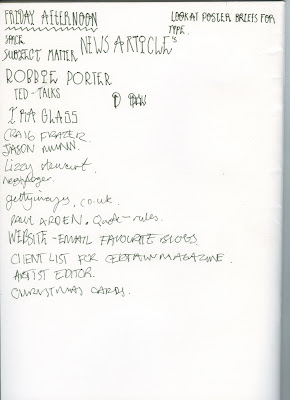 FRIDAY AFTERNOON
LOOK AT POSTER BRIEFS FOR
TYPE.
SPACE
NEWS ARTICLES
SUBJECT MATTER
ROBBIE PORTER
TED - TALKS
IRA GLASS
CRAIG FRAZER.
JASON MUNN.
Lizzy Stewart.
gettyimages.co.uk.
PAUL ARDEN. Quote - rules.
WEBSITE - EMAIL FAVOURITE BLOGS
CLIENT LIST FOR CERTAIN MAGAZINE.
ARTIST EDITOR.
CHRISTMAS CARDS.